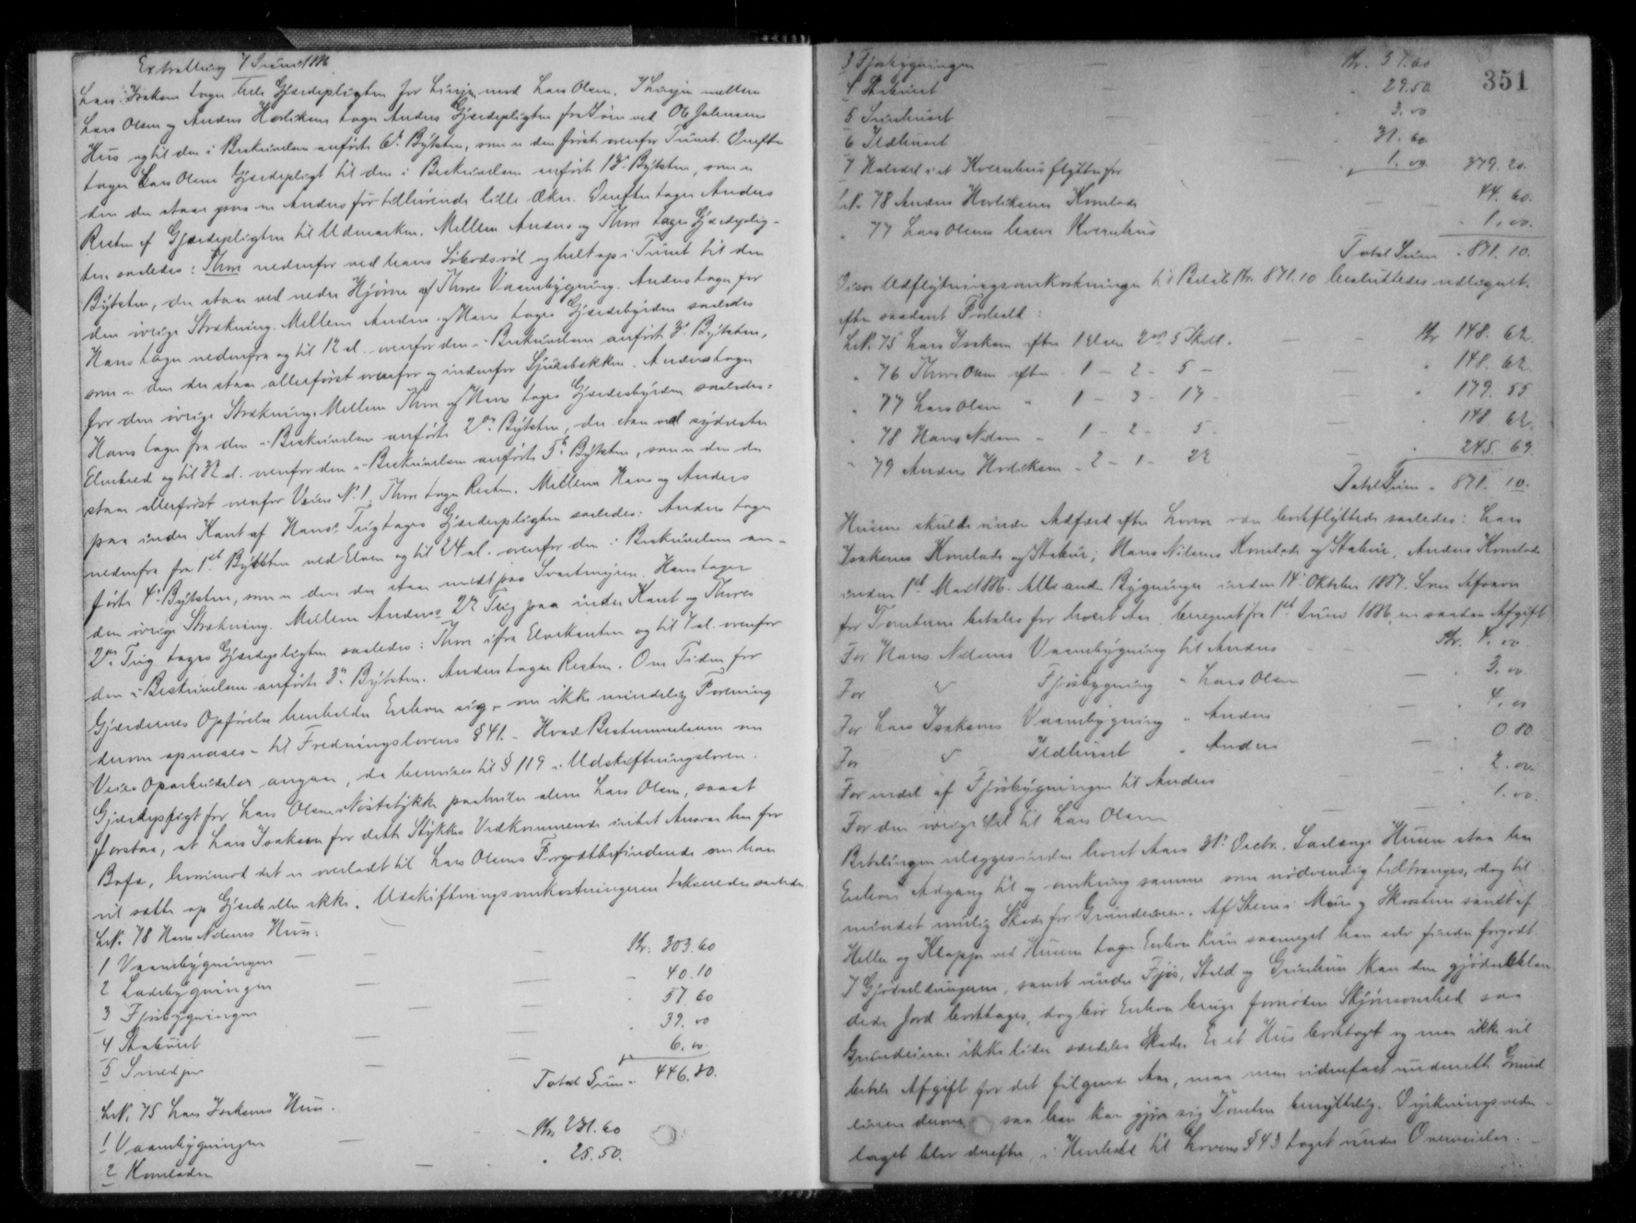 Extratting 7 Juni 1886
Lars Isaksen tager hele Gjærdepligten for Linjen mod Lars Olsen. I Linjen mellem
Lars Olsen og Anders Havliksen tager Anders Gjærdepligten fra Søen ved Ole Johnsens
Hus og til den i Beskrivelsen anførte 6te Bytesten, som er den første ovenfor Tunet. Derefter
tager Lars Olsen Gjærdepligt til den i Beskrivelsen anførte Bytesten, som er
den der staar paa en Anders før tilhørende lille Aker. Derefter tager Anders
Resten af Gjærdepligten til Udmarken. Mellem Anders og Thore tages Gjærdeplig-
ten saaledes: Thore nedenfor ved hans og helt op i Tunet til den
Bytesten, der staar ved nedre Hjørne af Thores Vaanbygning. Anders tager for
den øvrige Strækning. Mellem Anders og Hans tages Gjærdebyrden saaledes
Hans tager nedenfra og til 12 al. ovenfor den i Beskrivelsen anførte Bytesten,
som er den der staar allerførst ovenfor og indenfor Anders tager
for den øvrige Strækning. Mellem Thore og Hans tages Gjærdebyrden saaledes:
Hans tager fra den i Beskrivelsen anførte 2den Bytesten, der staar ved sydvestre
Elvebred og til 32 al. ovenfor den i Beskrivelsen anførte 5te Bytesten, som er den der
staar allerførst ovenfor Veien No 1. Thore tager Resten. Mellem Hans og Anders
paa indre Kant af Hans' Teig tages Gjærdepligten saaledes: Anders tager
nedenfra fra 1ste Bytesten ved Elven og til 24 al. ovenfor den i Beskrivelsen an-
førte 4de Bytesten, som er den der staar midt paa Svartmyren. Hans tager
den øvrige Strækning. Mellem Anders 2den Teig paa indre Kant og Thores
2den Teig tages Gjærdepligten saaledes: Thore ifra Elvekanten og til 7 al. ovenfor
den i Beskrivelsen anførte 3de Bytesten. Anders tager Resten. Om Tiden for
Gjærdernes Opførelse henholder Enhver sig, om ikke mindelig Forening
derom opnaaes, til Fredningslovens § 41. Hvad Bestemmelserne om
Veies Oparbeidelse angaar, da henvises til § 119 i Udskiftningsloven.
Gjærdepligt for Lars Olsens Nøstestykke paahviler alene Lars Olsen, saaat
forstaa, at Lars Isaksen for dette Stykkes Vedkommende intet Ansvar har for
Bufæ, hvorimod det er overladt til Lars Olsens Forgodtbefindende om han
vil sætte op Gjærde eller ikke. Udskiftningsomkostningerne takseredes saaledes
LNo. 78 Hans Nilsens Huse.
1 Vaanbygningen — Kr. 303.60
2 Ladebygningen — 40.10
3 Fjøsbygningen — 57.60
4 Staburet — 39.00
5 Smedjen — 6.00
Total Sum 446.30.
LNo. 75 Lars Isaksens Huse.
1 Vaanbygningen — Kr. 231.60
2 Kornladen — 25.50.
351
3 Fjøsbygningen — Kr. 57.60
4 Staburet — 29.50
5 — 3.00
6 Ildhuset — 31.00
7 Halvdel i et Kvernhus flyttes for — 1.00 379.20.
LNo. 78 Anders Havliksens Kornlade — 44.60.
" 77 Lars Olsens halve Kvernhus — 1.00.
Total Sum 871.10.
Disse Udflytningsomkostninger til Beløb Kr. 871.10 besluttedes udlignet
efter saadant Forhold:
LNo. 75 Lars Isaksen efter 1 Daler 2 Ort 5 Skill. — Kr 148.62.
" 76 Thore Olsen efter 1 - 2 - 5 — 148.62.
" 77 Lars Olsen " 1 - 3 - 17 — 179.55
" 78 Hans Nilsen " 1 - 2 - 5 — 148.62.
" 79 Anders Havliksen " 2 - 1 - 22 — 245.69.
Total Sum 871.10.
Husene skulde under Adfærd efter Loven være bortflyttede saaledes: Lars
Isaksens Kornlade og Stabur, Hans Nilsens Kornlade og Stabur, Anders Kornlade
inden 1ste Mai 1886. Alle andre Bygninger inden 14de Oktober 1887. Som Afsavn
for Tomterne betales for hvert Aar, beregnet fra 1ste Juni 1886, en saadan Afgift
For Hans Nilsens Vaanbygning til Anders — Kr. 4.00
For " Fjøsbygning " Lars Olsen — 3.00
For Lars Isaksens Vaanbygning " Anders — 4.00
For " Ildhuset " Anders — 0.80
For endel af Fjøsbygningen til Anders — 2.00
For den øvrige Del til Lars Olsen — 1.00.
Betalingen erlægges inden hvert Aars 31te Decbr. Saalænge Husene staar har
Enhver Adgang til og omkring samme som nødvendig tiltrænges, dog til
mindst mulig Skade for Grundeieren. Af Stene i Mure og Skorsten samt af
Heller og Klapper ved Husene tager Enhver saameget han selv finder forgodt
I Gjødseldyngerne, samt under Fjøs, Stald og Grisehus kan den gjødselblan-
dede Jord borttages, dog bør Enhver bruge fornøden Skjønsomhed saa
Grundeieren ikke lider særdeles Skade. Er et Hus borttaget og man ikke vil
betale Afgift for det følgende Aar, maa man underrette Grund-
eieren derom, saa han kan gjøre sig Tomten benyttelig. Dyrkningsveder-
laget blev derefter i Henhold til Lovens § 43 taget under Overveielse.